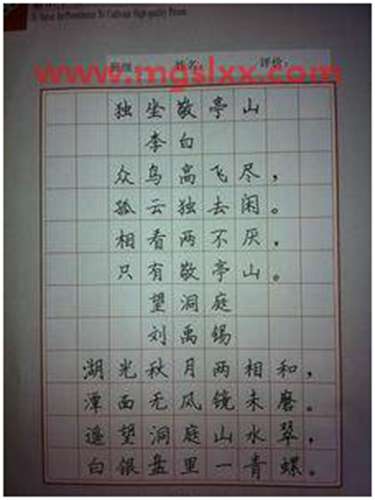 www.mgslxx.com
姓名: 评价:
独坐敬亭山
李白
众鸟高飞尽，
孤云独去闲。
相看两不厌，
只有敬亭山。
望洞庭
刘禹锡
湖光秋月两相和，
潭面无风镜未磨。
遥望洞庭山水翠，
白银盘里一青螺。